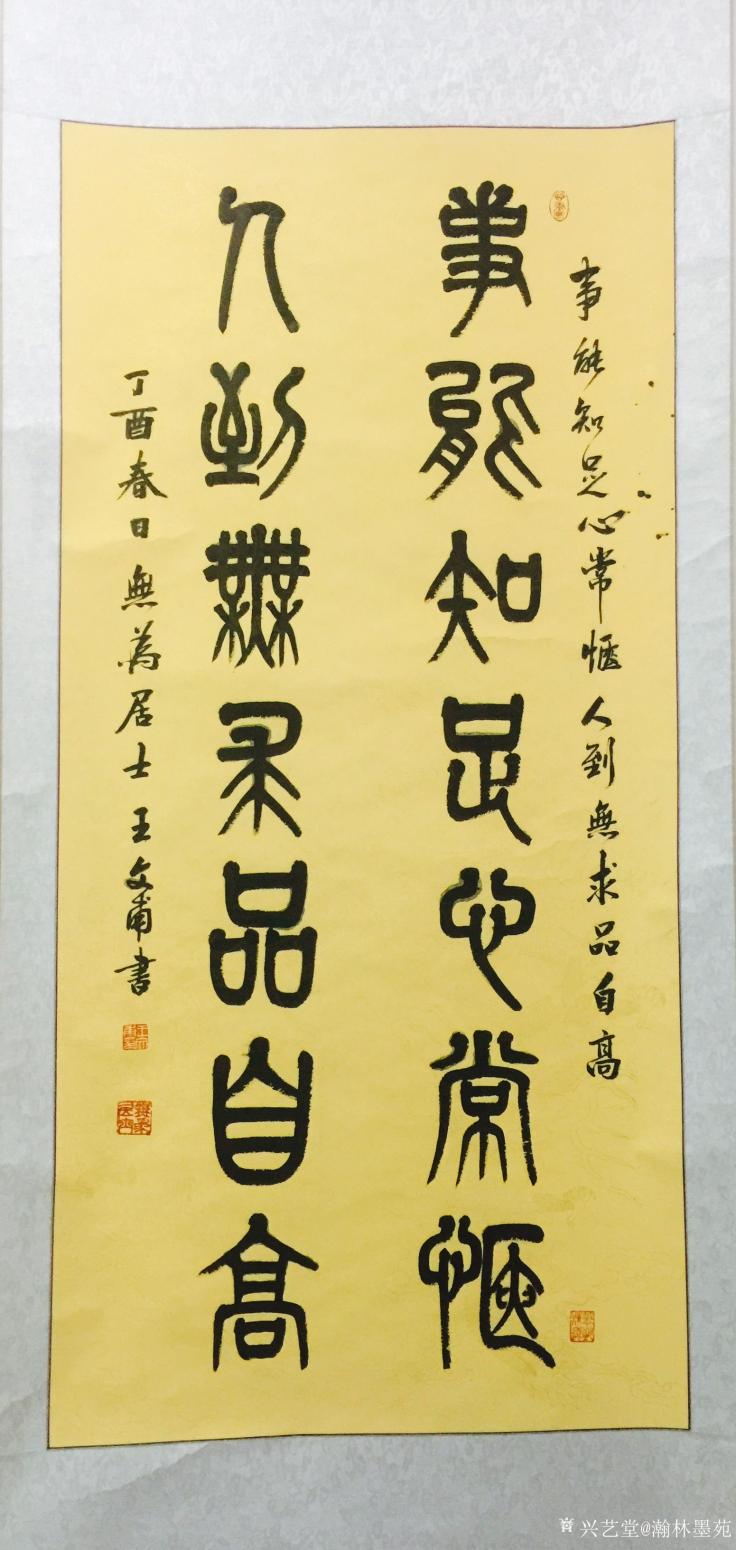 事能知足心常惬人到無求品自高
事能知足心常惬
人到無求品自高
丁酉春日無為居士王文甫書
兴艺堂@瀚林墨苑